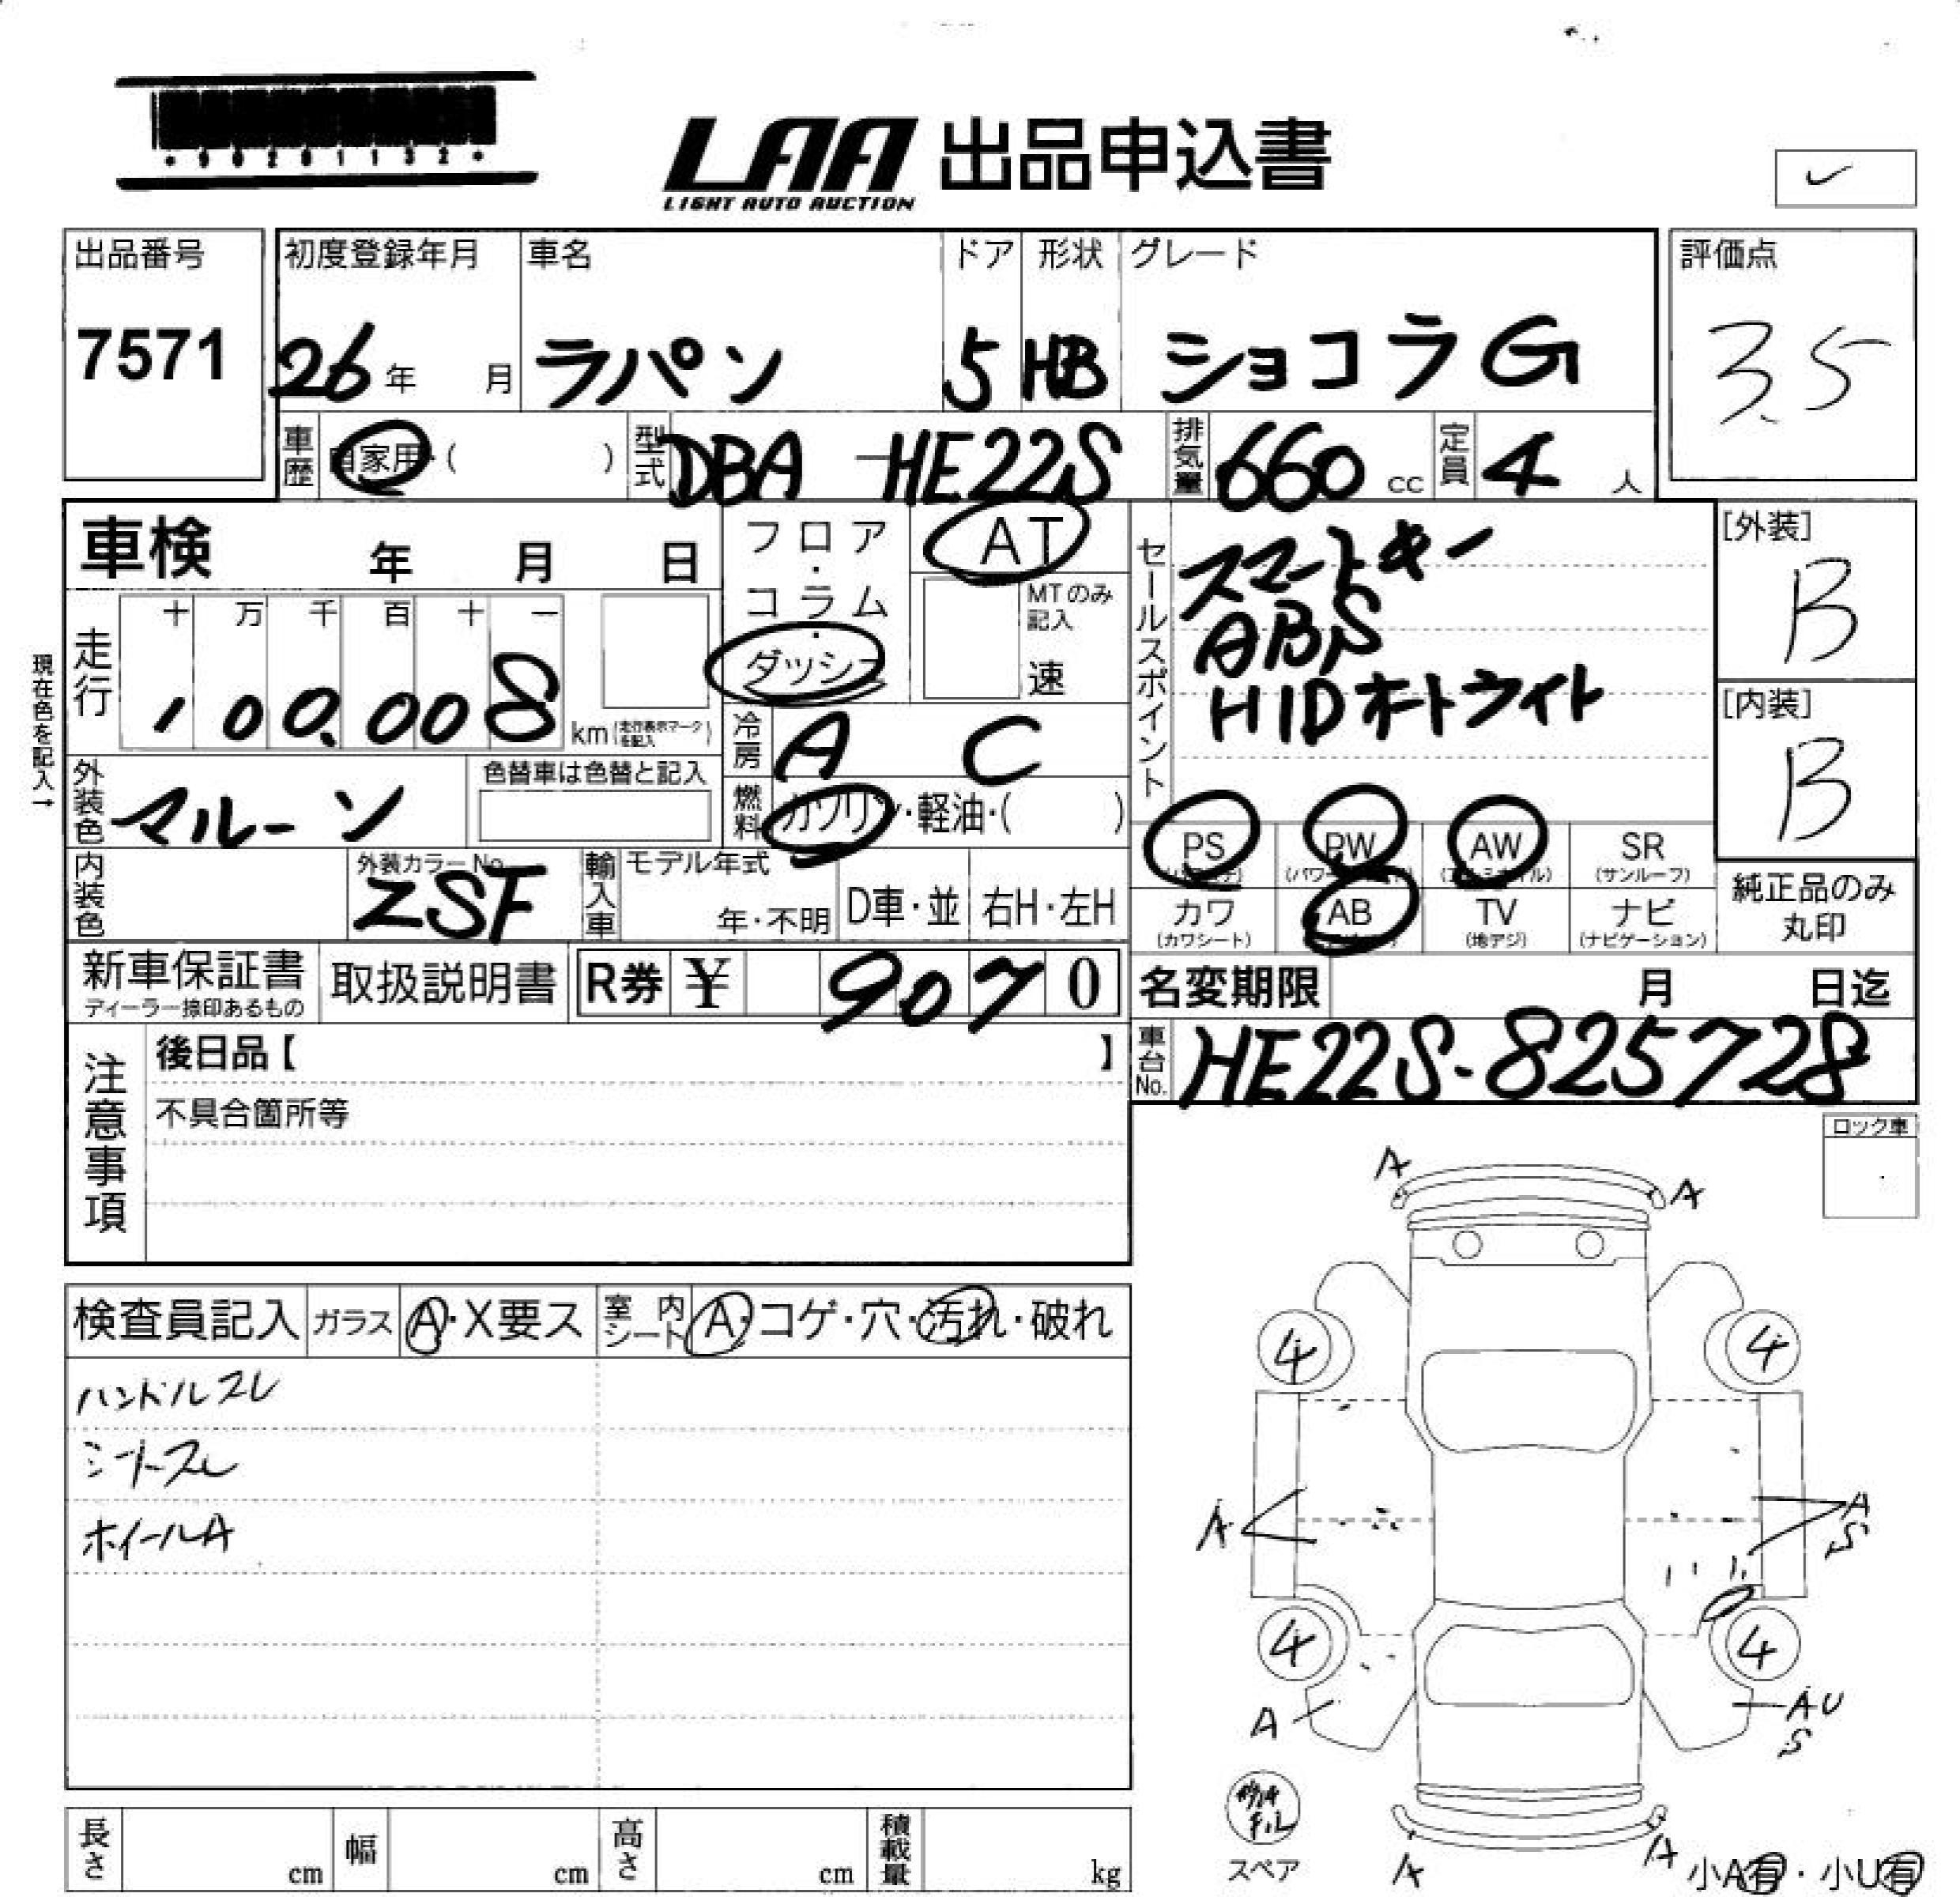 ・90201132・
LAA 出品申込書
LIGHT AUTO AUCTION
出品番号 初度登録年月 車名 ドア 形状 グレード 評価点
7571 26年 月 ラパン 5 HB ショコラG 3.5
車歴 自家用・( ) 型式 DBA-HE22S 排気量 660 cc 定員 4 人
車検 年 月 日
フロア・コラム・ダッシュ
AT
MTのみ記入
速
セールスポイント
スマートキー
ABS
HIDオートライト
[外装]
B
[内装]
B
現在色を記入→
走行 十 万 千 百 十 一
100.008 km (走行表示マークを記入)
冷房 AC
外装色 マルーン 色替車は色替と記入
燃料 ガソリン・軽油・( )
PS PW AW SR
(パワステ) (パワーウィンドウ) (アルミホイル) (サンルーフ)
内装色 外装カラーNo. ZSF 輸入車 モデル年式 年・不明 D車・並 右H・左H
カワ AB TV ナビ
(カワシート) (地デジ) (ナビゲーション)
純正品のみ
丸印
新車保証書 取扱説明書 R券 ¥ 9070
ディーラー捺印あるもの
名変期限 月 日迄
車台No. HE22S-825728
注意事項
後日品【 】
不具合箇所等
ロック車
A A
検査員記入 ガラス A・X要ス 室内シート A・コゲ・穴・汚れ・破れ
ハンドルスレ
シートスレ
ホイールA
4 4
A A
S
4 4
A AU
S
スペア
A A
小A有・小U有
長さ cm 幅 cm 高さ cm 積載量 kg